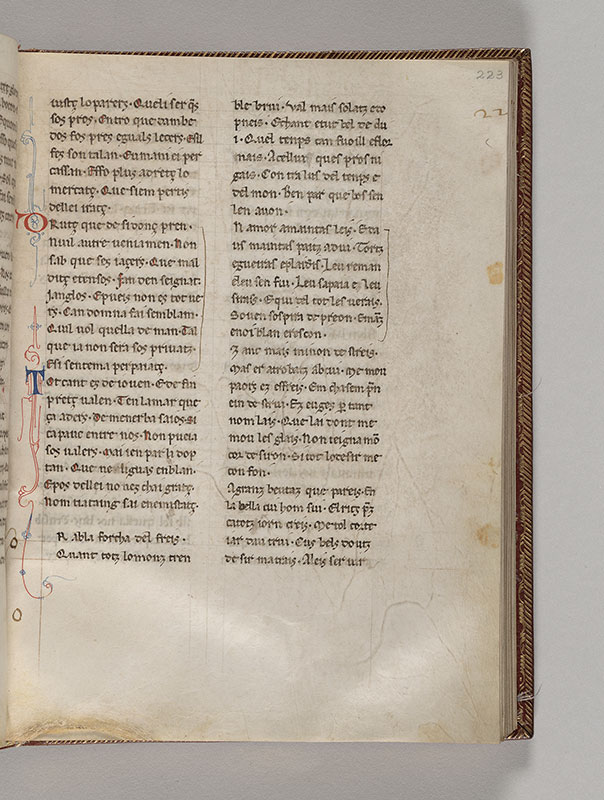 223
22
iustz lo paretz · Queli ser q̃s
sos pros · Entro que tambe
dos fos pres eguals leters · E sil
fes son talan · Eu mam ei per
cassan · Esso plus adretz lo
mercatz · Que siem peritz
dellei iratz ·
Drutz que de si dons pren ·
Nuil autre ueniamen · Non
sab que ses iazers · Que mal
ditz etensos · Fan den seignar
ianglos · E pueis non es tot ue
rs · Can domna fai semblam ·
Qual uol quella de man · Tal
que ia non sera sos priuatz ·
E si sentema per paiatz ·
Tot cant es de iouen · E de fin
pretz ualen · Ten lamar que
za aders · De menerba saios · Si
ca pauc entre nos · Non pueia
sos ualers · Mai ien par li dop
tan · Que ne liguas en blan ·
E pos dellei no nes chai gratz ·
Nom uacaing sai en emistatz ·
R abla forcha del freis ·
Quant totz lo monz tren
ble brui · Val mais solatz cro
pueis · E chant etut bel de du
i · Quel temps can fuoill e flor
nais · Acellui ques pros ni
gais · Con tra lus del temps e
del mon · Ben par que bos sen
len auon ·
Ri amor amaintas leis · E ta
us maintas patz adui · Tortz
egueiras eplaidis · Leu reman
eleu sen fui · Leu sapaia e leu
sirais · E qui bel tot les uerais ·
Souen sospira de preon · E mãtz
enoi blan erescon ·
Z anc mais mi non destreis ·
Mas er atrobatz ab cui · Me mon
paors ez esfreis · Em chasem pñ
ein de serui · Ez eu ges ꝑ tant
nom lais · Que lai dont me
mou les glais · Non teigna mõ
cor de siron · Si tot lo desir me
con fon ·
A granz beutaz que pareis · En
la bella cui hom sui · El ritz p̃z
catotz iorn creis · Me tol couer
iar dau trui · E us bels doutz
de sir ma trais · Aleis ser uir